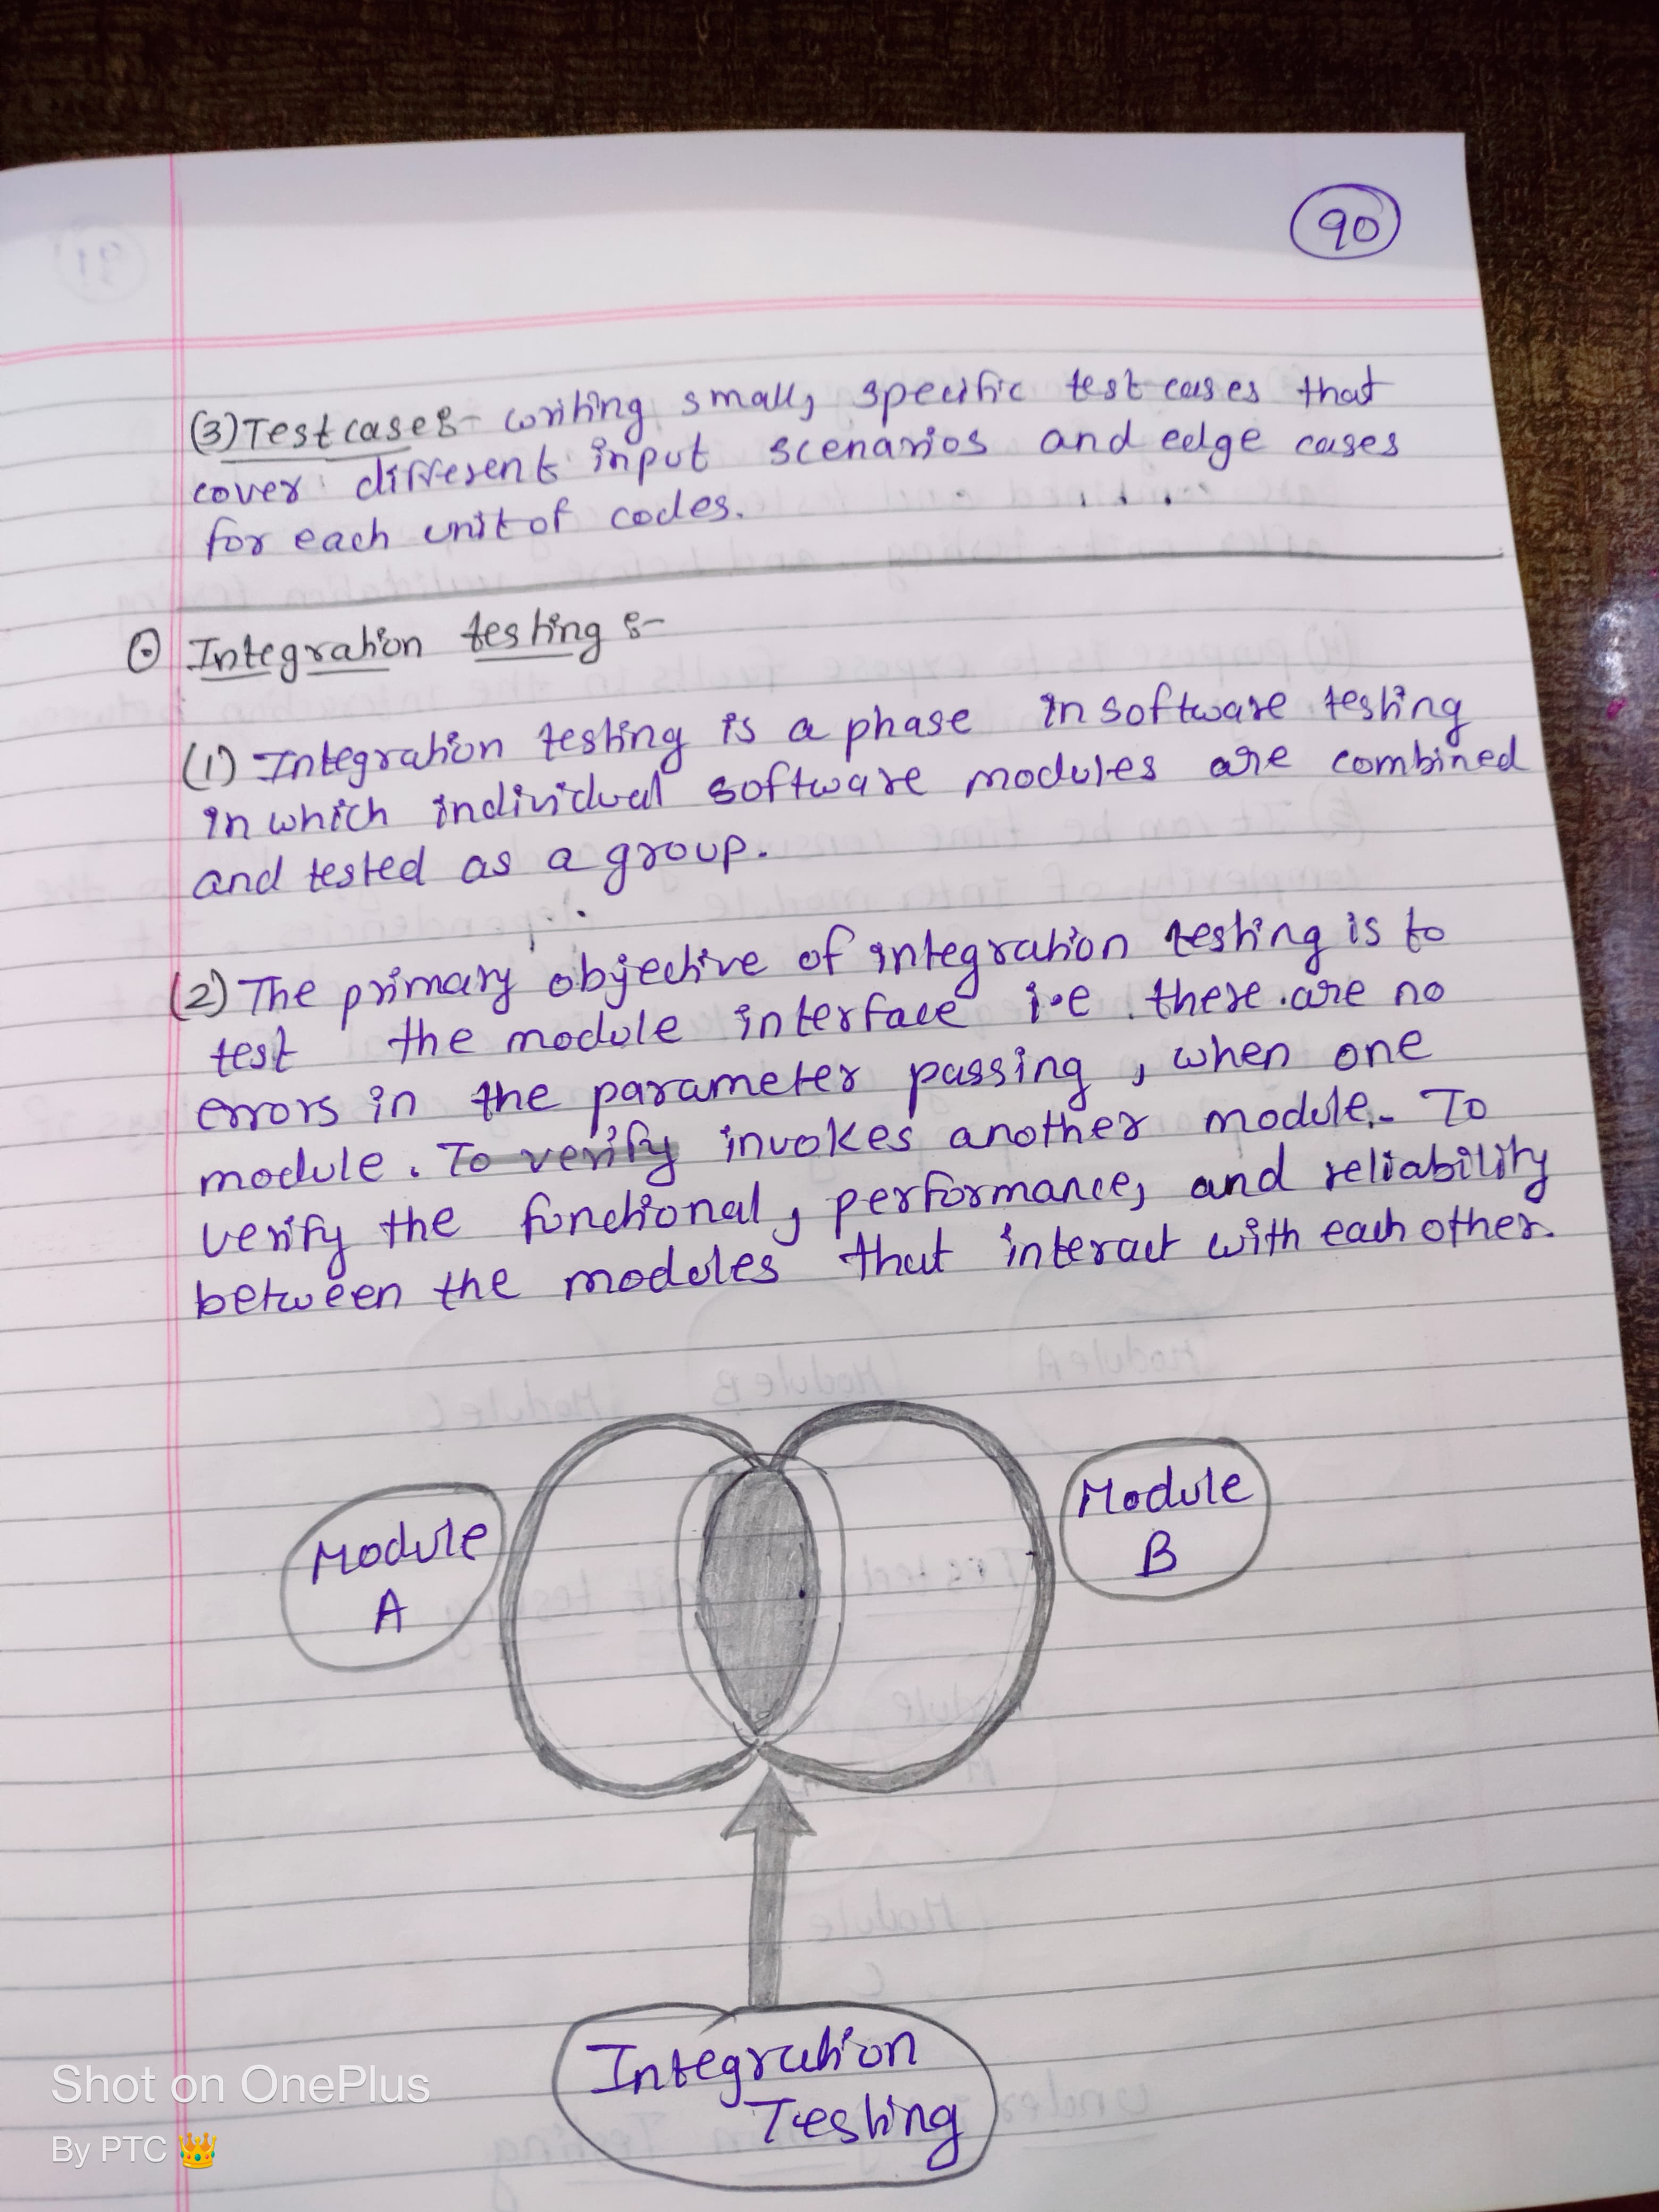 90
(3) Test cases:- writing small, specific test cases that
cover different input scenarios and edge cases
for each unit of codes.
⊙ Integration testing :-
(1) Integration testing is a phase in software testing
in which individual software modules are combined
and tested as a group.
(2) The primary objective of integration testing is to
test the module interface i.e there are no
errors in the parameter passing, when one
module. To verify invokes another module. To
verify the functional, performance, and reliability
between the modules that interact with each other.
Module
A
Module
B
Integration
Testing
Shot on OnePlus
By PTC 👑